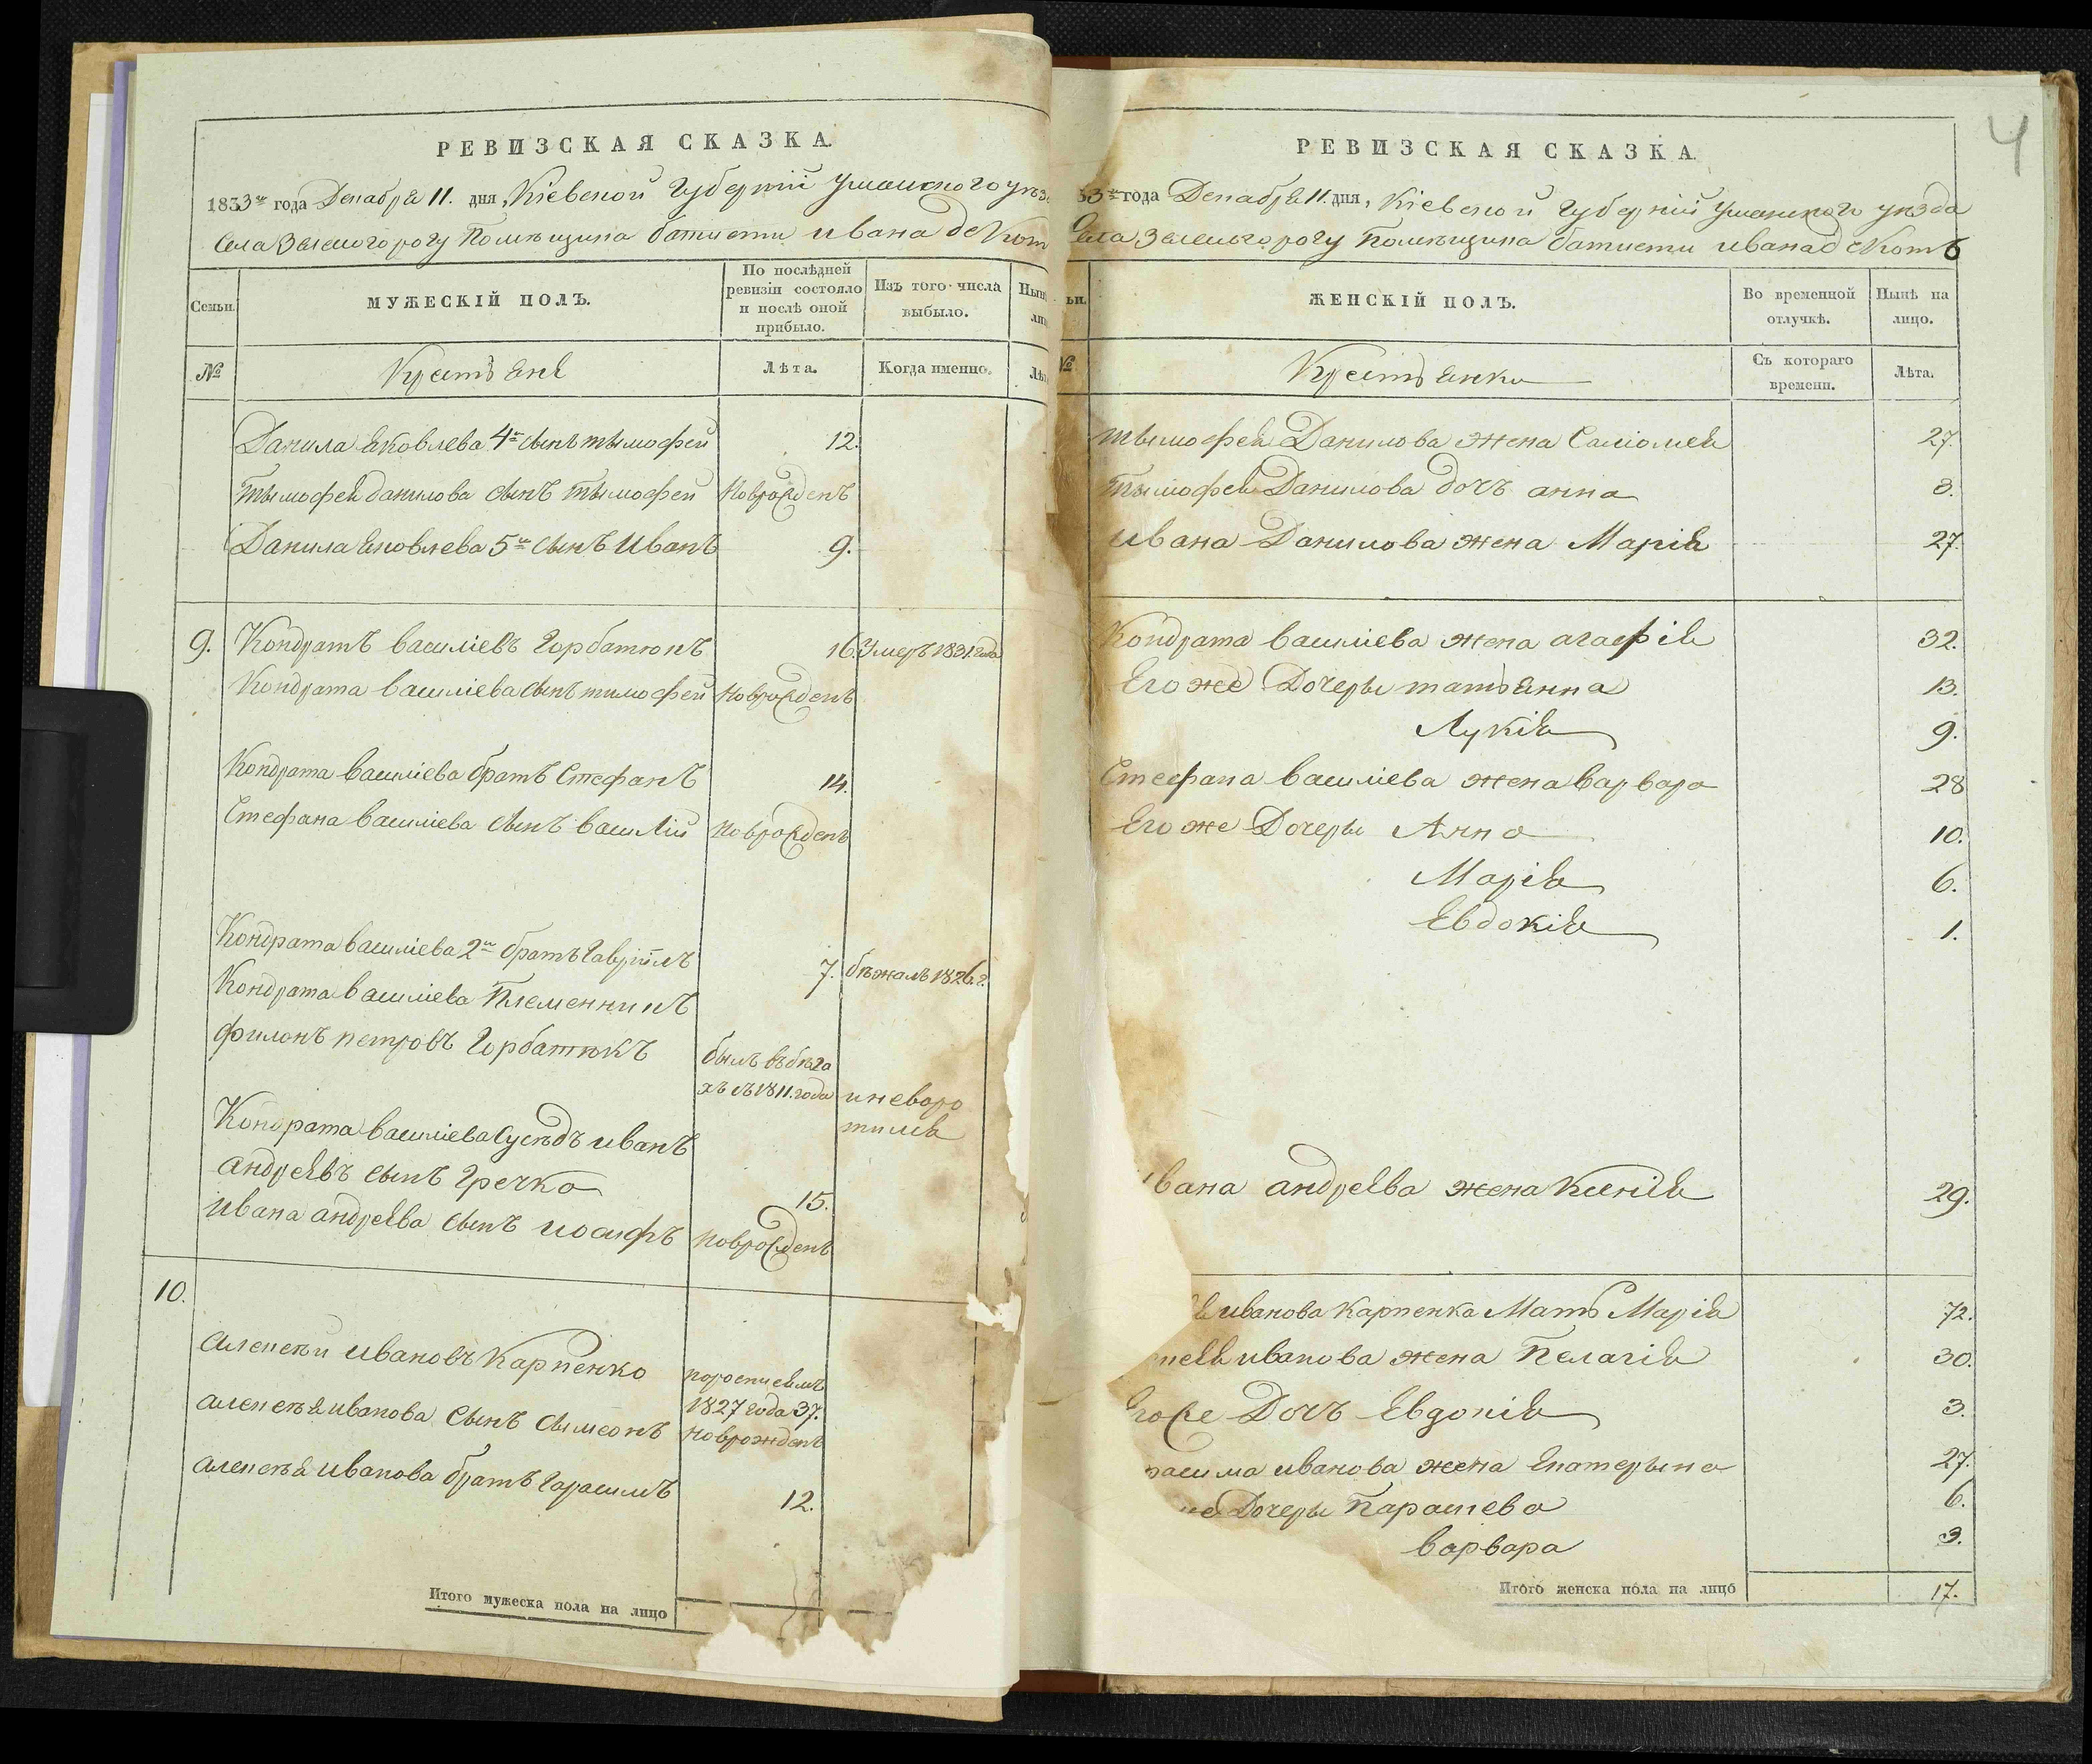 РЕВИЗСКАЯ СКАЗКА.
1833го года Декабря 11. дня, Кіевской Губерніи Уманского уѣз
Села Зеленого рогу Помѣщика батисти Ивана де Кот
Семьи.
МУЖЕСКІЙ ПОЛЪ.
По послѣдней ревизіи состояло и послѣ оной прибыло.
Изъ того числа выбыло.
№
Крестьяне
Лѣта.
Когда именно.
Данила Яковлева 4й сынъ тымофей 12.
Тымофея данилова сынъ тымофей Новрожденъ
Данила Яковлева 5й сынъ Иванъ 9.
9. Кондратъ василіевъ Горбатюкъ 16. Умеръ 1831. года
Кондрата василіева сынъ тимофей Новрожденъ
Кондрата василіева братъ Стефанъ 14.
Стефана василіева сынъ василій Новрожденъ
Кондрата василіева 2й братъ Гавріилъ 7. бѣжалъ 1826. г.
Кондрата василіева Племенникъ
филонъ петровъ Горбатюкъ былъ въ бѣга
хъ съ 1811. года и неворо
тился
Кондрата василіева Сусѣдъ иванъ
андреявъ сынъ Гречко 15.
ивана андреява сынъ иосифъ новрожденъ
10.
Алексѣй ивановъ Карпенко
1827 года 37.
алексѣя иванова Сынъ сымеонъ новрожденъ
алексѣя иванова братъ Гарасимъ 12.
Итого мужеска пола на лицо
4
РЕВИЗСКАЯ СКАЗКА.
33го года Декабря 11. дня, Кіевской Губерніи Уманского уѣзда
Села Зеленого рогу Помѣщика батисти ивана де Котъ
ЖЕНСКІЙ ПОЛЪ.
Во временной отлучкѣ.
Нынѣ на лицо.
№
Крестьянки
Съ котораго времени.
Лѣта.
тымофея Данилова жена Саломея 27.
Тымофея Данилова дочъ анна 8.
ивана Данилова жена Марія 27.
Кондрата василіева жена агафія 32.
Его же Дочеры татьянна 13.
Лукія 9.
Стефана василіева жена варвара 28
Его же Дочеры Анна 10.
Марія 6.
Евдокія 1.
вана андреява жена Ксенія 29.
я иванова Карпенка Мать Марія 72.
ксѣя иванова жена Пелагія 30.
Его же Дочъ Евдокія 3.
расима иванова жена Екатерына 27.
же Дочеры Параскева 6.
варвара 3.
Итого женска пола на лицо 17.